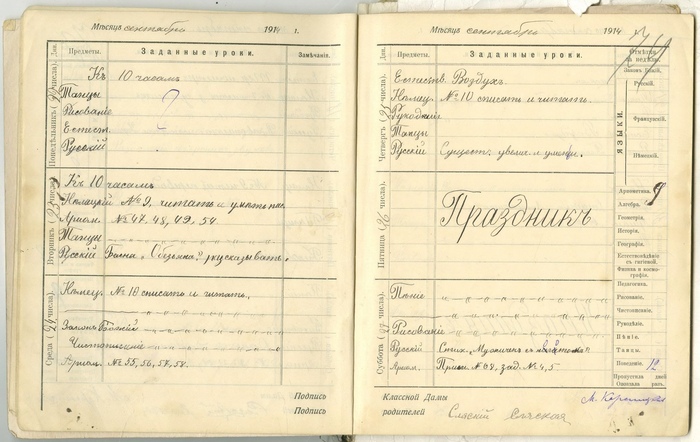 Мѣсяцъ сентябрь 1914 г.
Дни. Предметы. Заданные уроки. Замѣчанія.
Понедѣльникъ числа).
Къ 10 часамъ
Танцы
?
Рисованіе
Естест.
Русскій
Вторникъ числа).
Къ 10 часамъ
№ 9, читать и умѣть
Ариѳм. № 47, 48, 49, 54.
Танцы
Русскій Басня „ рассказывать.
Среда числа).
Нѣмец. № 10 списать и читать.
Законъ Божій
Чистописаніе
Ариѳм. № 55, 56, 57, 58.
Подпись
Подпись
Мѣсяцъ сентябрь 1914
Дни. Предметы. Заданные уроки. Отмѣтки за недѣлю.
Четвергъ числа).
Естеств. Воздухъ.
Нѣмец. № 10 списать и читать.
Рукодѣліе
Танцы
Русскій Сущест.
Пятница числа).
Праздникъ
Суббота числа).
Пѣніе
Рисованіе
Русскій Стих.
Ариѳм. № 68, зад. № 4, 5
Законъ Божій.
ЯЗЫКИ.
Русскій.
Французскій.
Нѣмецкій.
Ариѳметика. 9
Алгебра.
Геометрія.
Исторія.
Географія.
Естествовѣдѣніе съ гигіеной.
Физика и космографія.
Педагогика.
Рисованіе.
Чистописаніе.
Рукодѣліе.
Пѣніе.
Танцы.
Поведеніе. 12
Пропустила дней
Опоздала разъ.
Классной Дамы
родителей